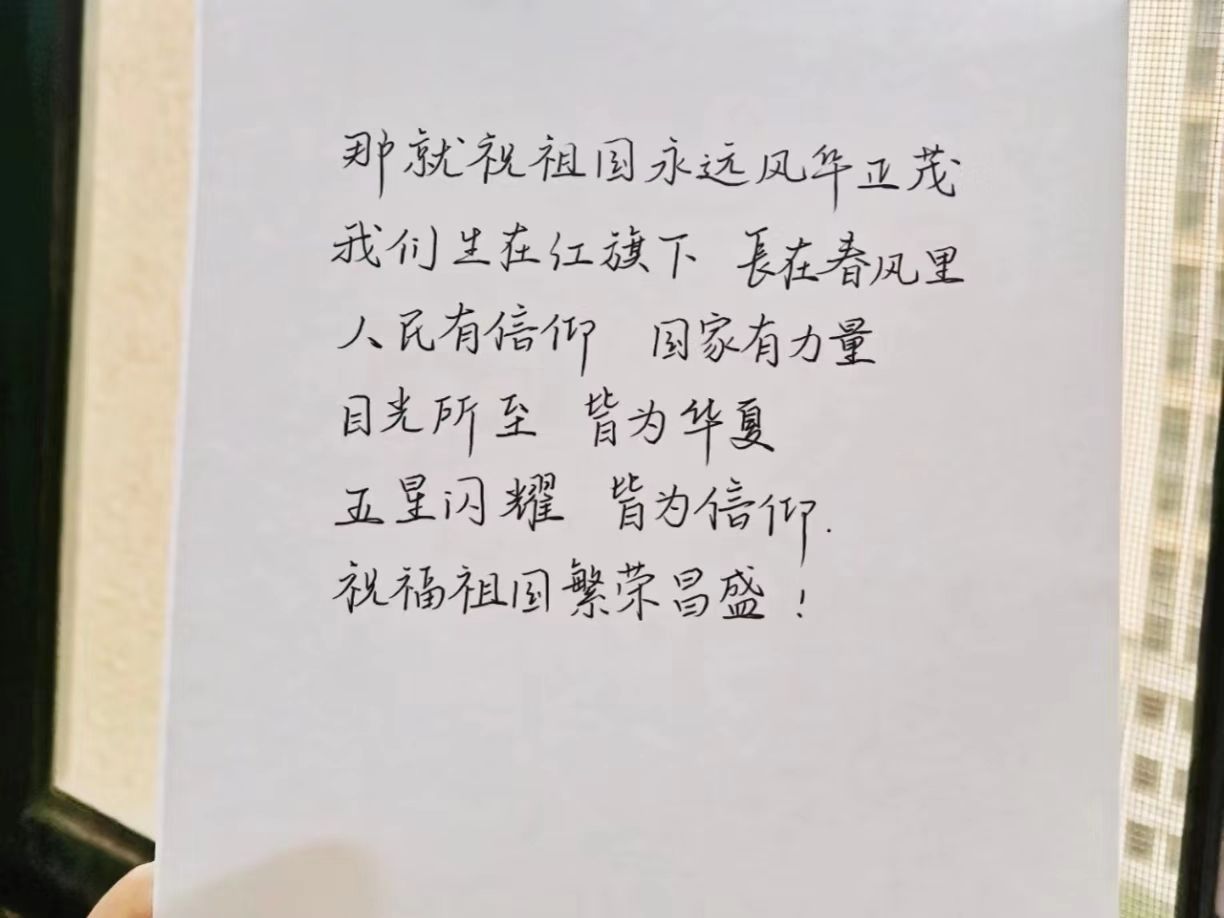 那就祝祖国永远风华正茂
我们生在红旗下 長在春风里
人民有信仰 国家有力量
目光所至 皆为华夏
五星闪耀 皆为信仰.
祝福祖国繁荣昌盛!